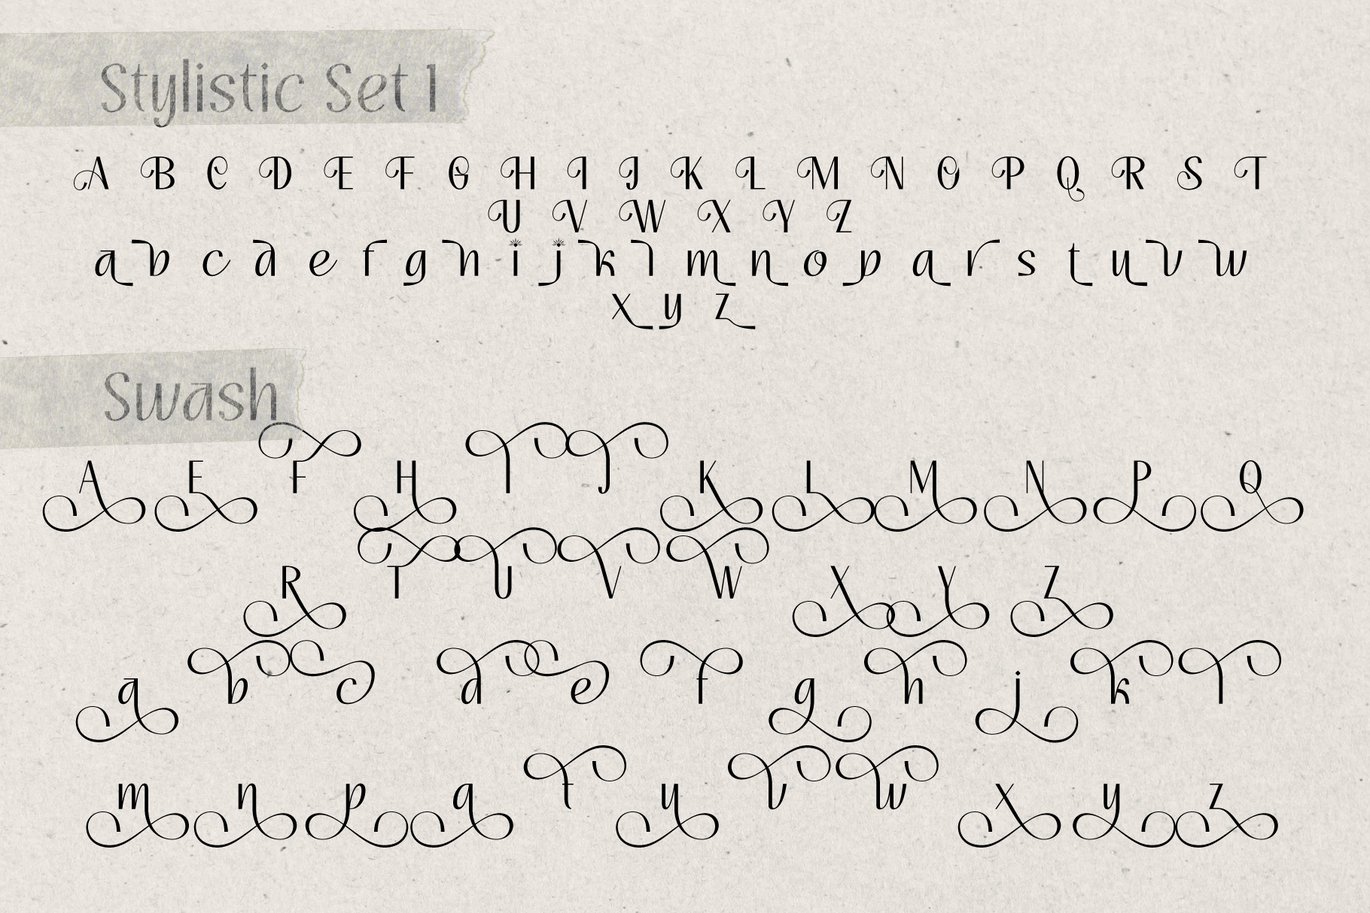 Stylistic Set 1
A B C D E F G H I J K L M N O P Q R S T
U V W X Y Z
a b c d e f g h i j k l m n o p q r s t u v w
x y z
Swash
A E F H I J K L M N P Q
R T U V W X Y Z
a b c d e f g h j k l
m n p q t u v w x y z